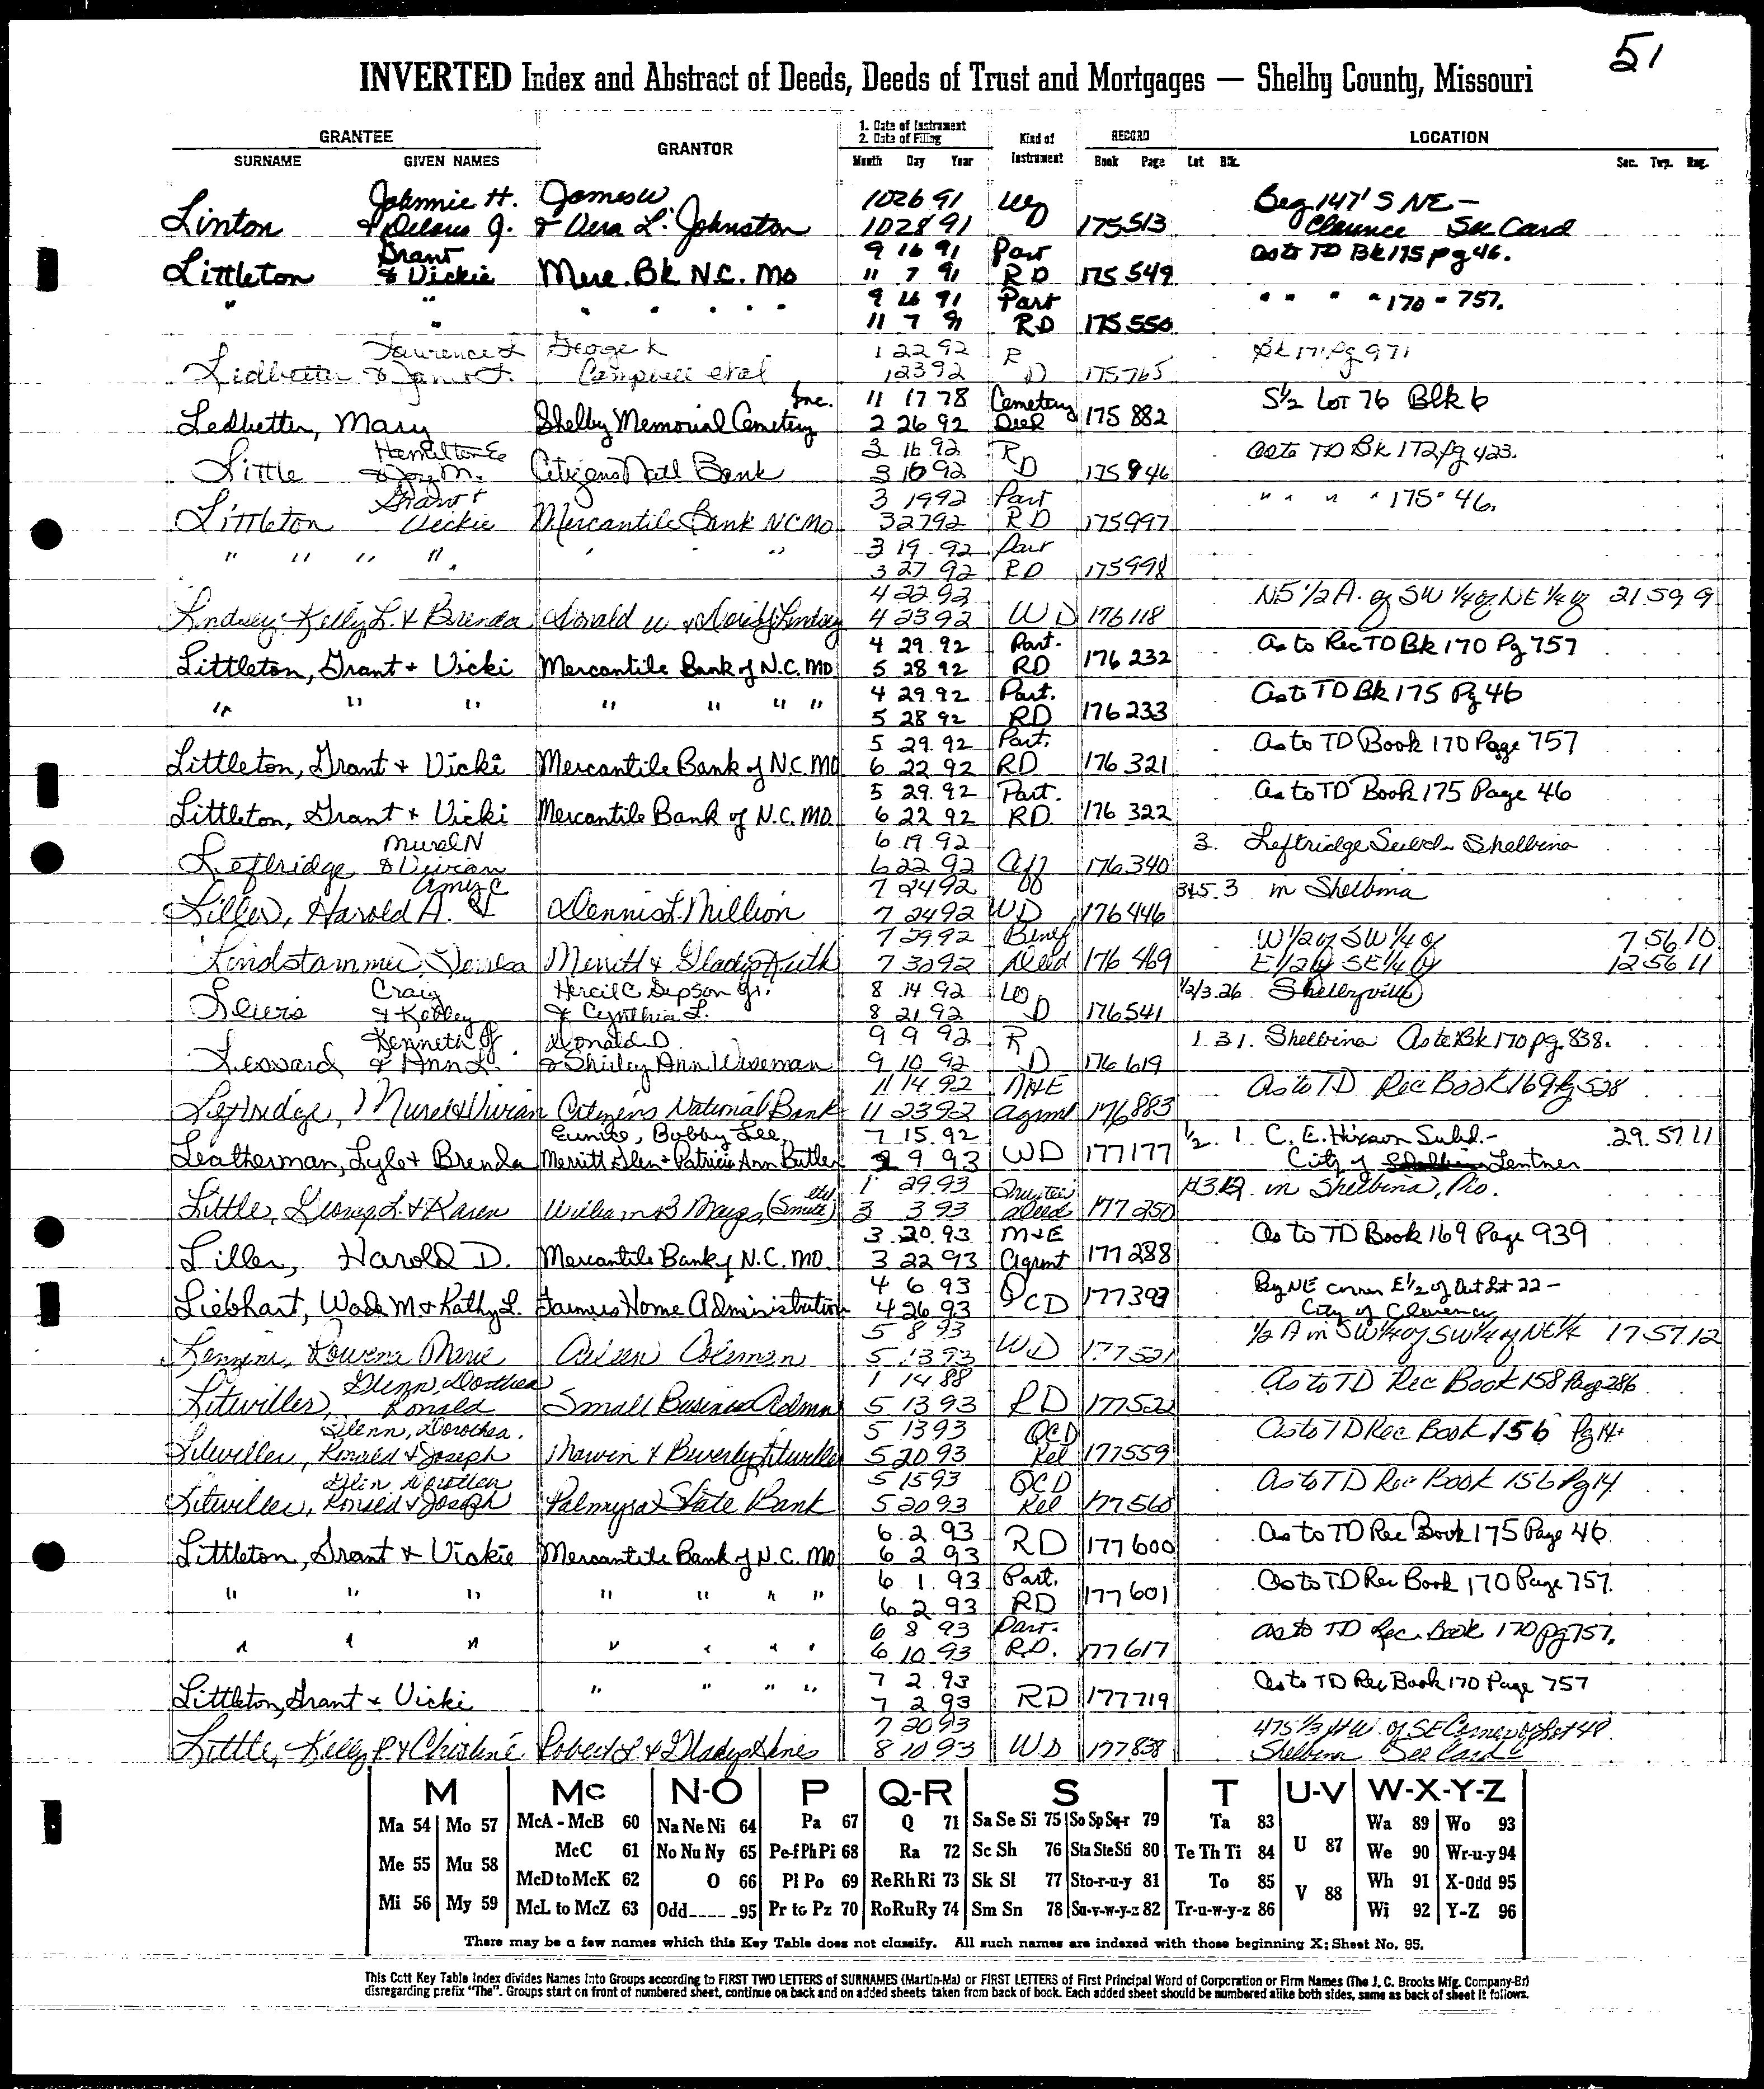 51
INVERTED Index and Abstract of Deeds, Deeds of Trust and Mortgages — Shelby County, Missouri
GRANTEE GRANTOR 1. Date of Instrument 2. Date of Filing Kind of Instrument RECORD LOCATION
SURNAME GIVEN NAMES Month Day Year Book Page Lot Blk. Sec. Twp. Rng.
Johnnie H. James W 10 26 91 WD Beg 147' S NE -
Linton & Delous J. & Vera L. Johnston 10 28 91 175 513 Clarence See Card
Grant 9 16 91 Part as to TD Bk 175 pg 46.
Littleton & Vickie Merc. Bk N.C. Mo 11 7 91 RD 175 549
" " " " " " " 9 16 91 Part " " " " 170 " 757.
11 7 91 RD 175 550
Lawrence L George K 1 22 92 R Bk 171 Pg 971
Ledbetter & Janis F. Campbell etal 1 23 92 D 175 765
Inc. 11 17 78 Cemetery S½ Lot 76 Blk 6
Ledbetter, Mary Shelby Memorial Cemetery 2 26 92 Deed 175 882
Hamilton E 3 16 92 R as to TD Bk 172 pg 423.
Little & Joy M. Citizens Natl Bank 3 16 92 D 175 946
Grant & 3 19 92 Part " " " " 175 " 46.
Littleton Vickie Mercantile Bank NC MO 3 27 92 RD 175 997
" " " " " " " 3 19 92 Part
3 27 92 RD 175 998
4 22 92 N 5 1/2 A. of SW 1/4 of NE 1/4 of 21 59 9
Lindsey Kelly L. & Brenda Donald W & Doris Lindsey 4 23 92 WD 176 118
4 29 92 Part. As to Rec TD Bk 170 Pg 757
Littleton, Grant & Vicki Mercantile Bank of N.C. MO 5 28 92 RD 176 232
" " " " " " " 4 29 92 Part. As to TD Bk 175 Pg 46
5 28 92 RD 176 233
5 29 92 Part. As to TD Book 170 Page 757
Littleton, Grant & Vicki Mercantile Bank of N.C. MO 6 22 92 RD 176 321
5 29 92 Part. As to TD Book 175 Page 46
Littleton, Grant & Vicki Mercantile Bank of N.C. MO. 6 22 92 RD. 176 322
Murel N 6 19 92 3. Leftridge Subd. Shelbina
Leftridge & Vivian 6 22 92 Aff 176 340
Amy C 7 24 92 3 in Shelbina
Liller, Harold A. & Dennis L. Million 7 24 92 WD 176 446
7 29 92 Benef W 1/2 of SW 1/4 of 7 56 10
Merritt & Gladys 7 30 92 Deed 176 469 E 1/2 of SE 1/4 of 12 56 11
Craig Hercil C Jepson Jr. 8 14 92 W 1/2/3. 26. Shelbyville
Lewis & Kelley & Cynthia L. 8 21 92 D 176 541
Kenneth J Donald D. 9 9 92 R 1 31. Shelbina As to Bk 170 pg. 838.
Lessard & Ann L. & Shirley Ann Wiseman 9 10 92 D 176 619
11 14 92 M&E As to TD Rec Book 169 Pg 528
Leftridge, Murel & Vivian Citizens National Bank 11 23 92 Agmt 176 883
Eunice, Bobby Lee, 7 15 92 1/2 1 C. E. Hixson Subd. - 29 57 11
Leatherman, Lyle & Brenda Merritt Glen & Patricia Ann Butler 2 9 93 WD 177 177 City of Lentner
etal 1 29 93 Trustee in Shelbina, Mo.
Little, George L. & Karen William B Mayes, (Smith) 3 3 93 Deed 177 250
3 20 93 M&E As to TD Book 169 Page 939
Liller, Harold D. Mercantile Bank of N.C. MO. 3 22 93 Agrmt 177 288
4 6 93 Beg NE corner E½ of Out Lot 22 -
Liebhart, Wade M & Kathy L. Farmers Home Administration 4 26 93 QCD 177 393 City of Clarence
5 8 93 1/2 A in SW 1/4 of SW 1/4 of NE 1/4 17 57 12
Rowena Marie Coleman 5 13 93 WD 177 521
Glenn, Dorthea 1 14 88 As to TD Rec Book 158 Page 286
Litwiller, Ronald Small Business Admn 5 13 93 RD 177 522
Glenn, Dorothea. 5 13 93 QCD As to TD Rec Book 156 Pg 14
Litwiller, Ronald & Joseph Marvin & Beverly Litwiller 5 20 93 Rel 177 559
Glen Dorothea 5 15 93 QCD As to TD Rec Book 156 Pg 14
Litwiller, Ronald & Joseph Palmyra State Bank 5 20 93 Rel 177 560
6 2 93 As to TD Rec Book 175 Page 46.
Littleton, Grant & Vickie Mercantile Bank of N.C. Mo 6 2 93 RD 177 600
" " " " " " " 6 1 93 Part. As to TD Rec Book 170 Page 757.
6 2 93 RD 177 601
" " " " " " " 6 8 93 Part. as to TD Rec. Book 170 pg 757.
6 10 93 RD. 177 617
" " " " 7 2 93 As to TD Rec Book 170 Page 757
Littleton, Grant & Vicki 7 2 93 RD 177 719
7 20 93 475 1/3 ft W. of SE Corner of Lot 48
Little, Kelly P. & Christine Robert L. & Gladys Hines 8 10 93 WD 177 838 Shelbina See Card
M Mc N-O P Q-R S T U-V W-X-Y-Z
Ma 54 Mo 57 McA - McB 60 Na Ne Ni 64 Pa 67 Q 71 Sa Se Si 75 So Sp Sq-r 79 Ta 83 Wa 89 Wo 93
McC 61 No Nu Ny 65 Pe-f Ph Pi 68 Ra 72 Sc Sh 76 Sta Ste Sti 80 Te Th Ti 84 U 87 We 90 Wr-u-y 94
Me 55 Mu 58 McD to McK 62 O 66 Pl Po 69 Re Rh Ri 73 Sk Sl 77 Sto-r-u-y 81 To 85 V 88 Wh 91 X-Odd 95
Mi 56 My 59 McL to McZ 63 Odd----95 Pr to Pz 70 Ro Ru Ry 74 Sm Sn 78 Su-v-w-y-z 82 Tr-u-w-y-z 86 Wi 92 Y-Z 96
There may be a few names which this Key Table does not classify. All such names are indexed with those beginning X; Sheet No. 95.
This Cott Key Table Index divides Names into Groups according to FIRST TWO LETTERS of SURNAMES (Martin-Ma) or FIRST LETTERS of First Principal Word of Corporation or Firm Names (The J. C. Brooks Mfg. Company-Br)
disregarding prefix "The". Groups start on front of numbered sheet, continue on back and on added sheets taken from back of book. Each added sheet should be numbered alike both sides, same as back of sheet it follows.